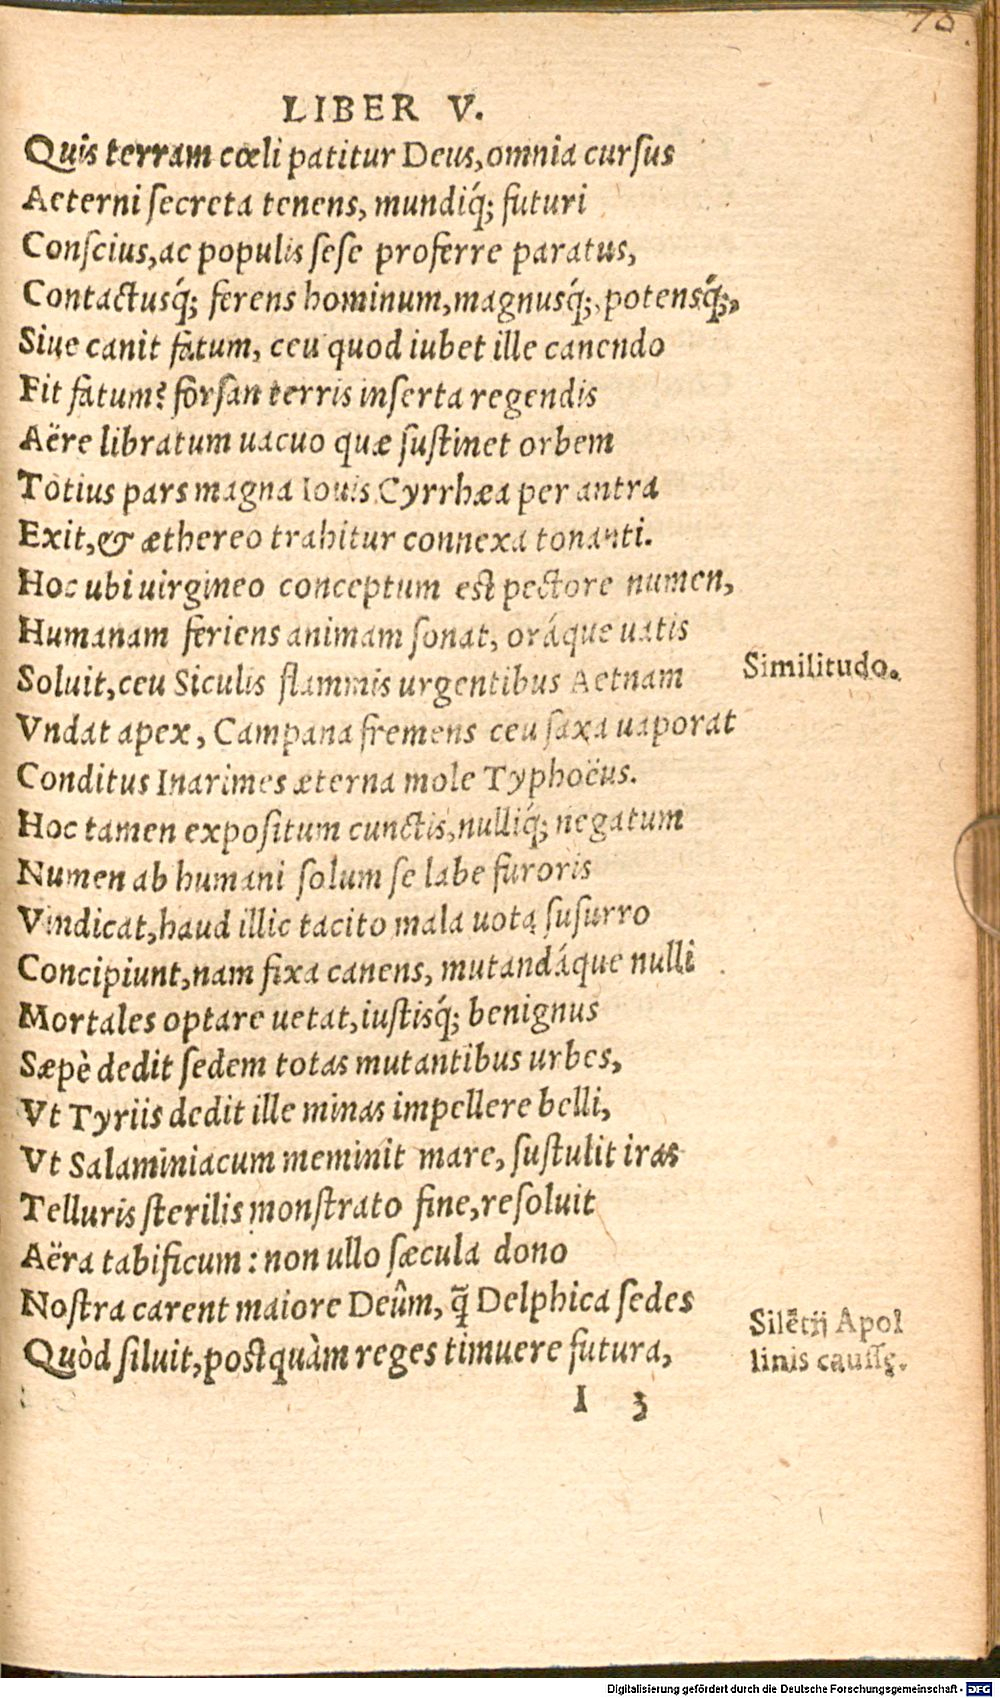 LIBER V.
Quis terram cœli patitur Deus, omnia cursus
Aeterni secreta tenens, mundiq́; futuri
Conscius, ac populis sese proferre paratus,
Contactusq́; ferens hominum, magnusq́;, potensq́;,
Siue canit fatum, ceu quod iubet ille canendo
Fit fatum? forsan terris inserta regendis
Aëre libratum uacuo quæ sustinet orbem
Totius pars magna Iouis Cyrrhæa per antra
Exit, & æthereo trahitur connexa tonanti.
Hoc ubi uirgineo conceptum est pectore numen,
Humanam feriens animam sonat, oráque uatis
Soluit, ceu Siculis flammis urgentibus Aetnam
Similitudo.
Vndat apex, Campana fremens ceu saxa uaporat
Conditus Inarimes æterna mole Typhoëus.
Hoc tamen expositum cunctis, nulliq́; negatum
Numen ab humani solum se labe furoris
Vindicat, haud illic tacito mala uota susurro
Concipiunt, nam fixa canens, mutandáque nulli
Mortales optare uetat, iustisq́; benignus
Sæpè dedit sedem totas mutantibus urbes,
Vt Tyriis dedit ille minas impellere belli,
Vt Salaminiacum meminit mare, sustulit iras
Telluris sterilis monstrato fine, resoluit
Aëra tabificum: non ullo sæcula dono
Nostra carent maiore Deûm, q̃ Delphica sedes
Silẽtij Apol
Quòd siluit, postquàm reges timuere futura,
linis caussę.
I 3
Digitalisierung gefördert durch die Deutsche Forschungsgemeinschaft - DFG